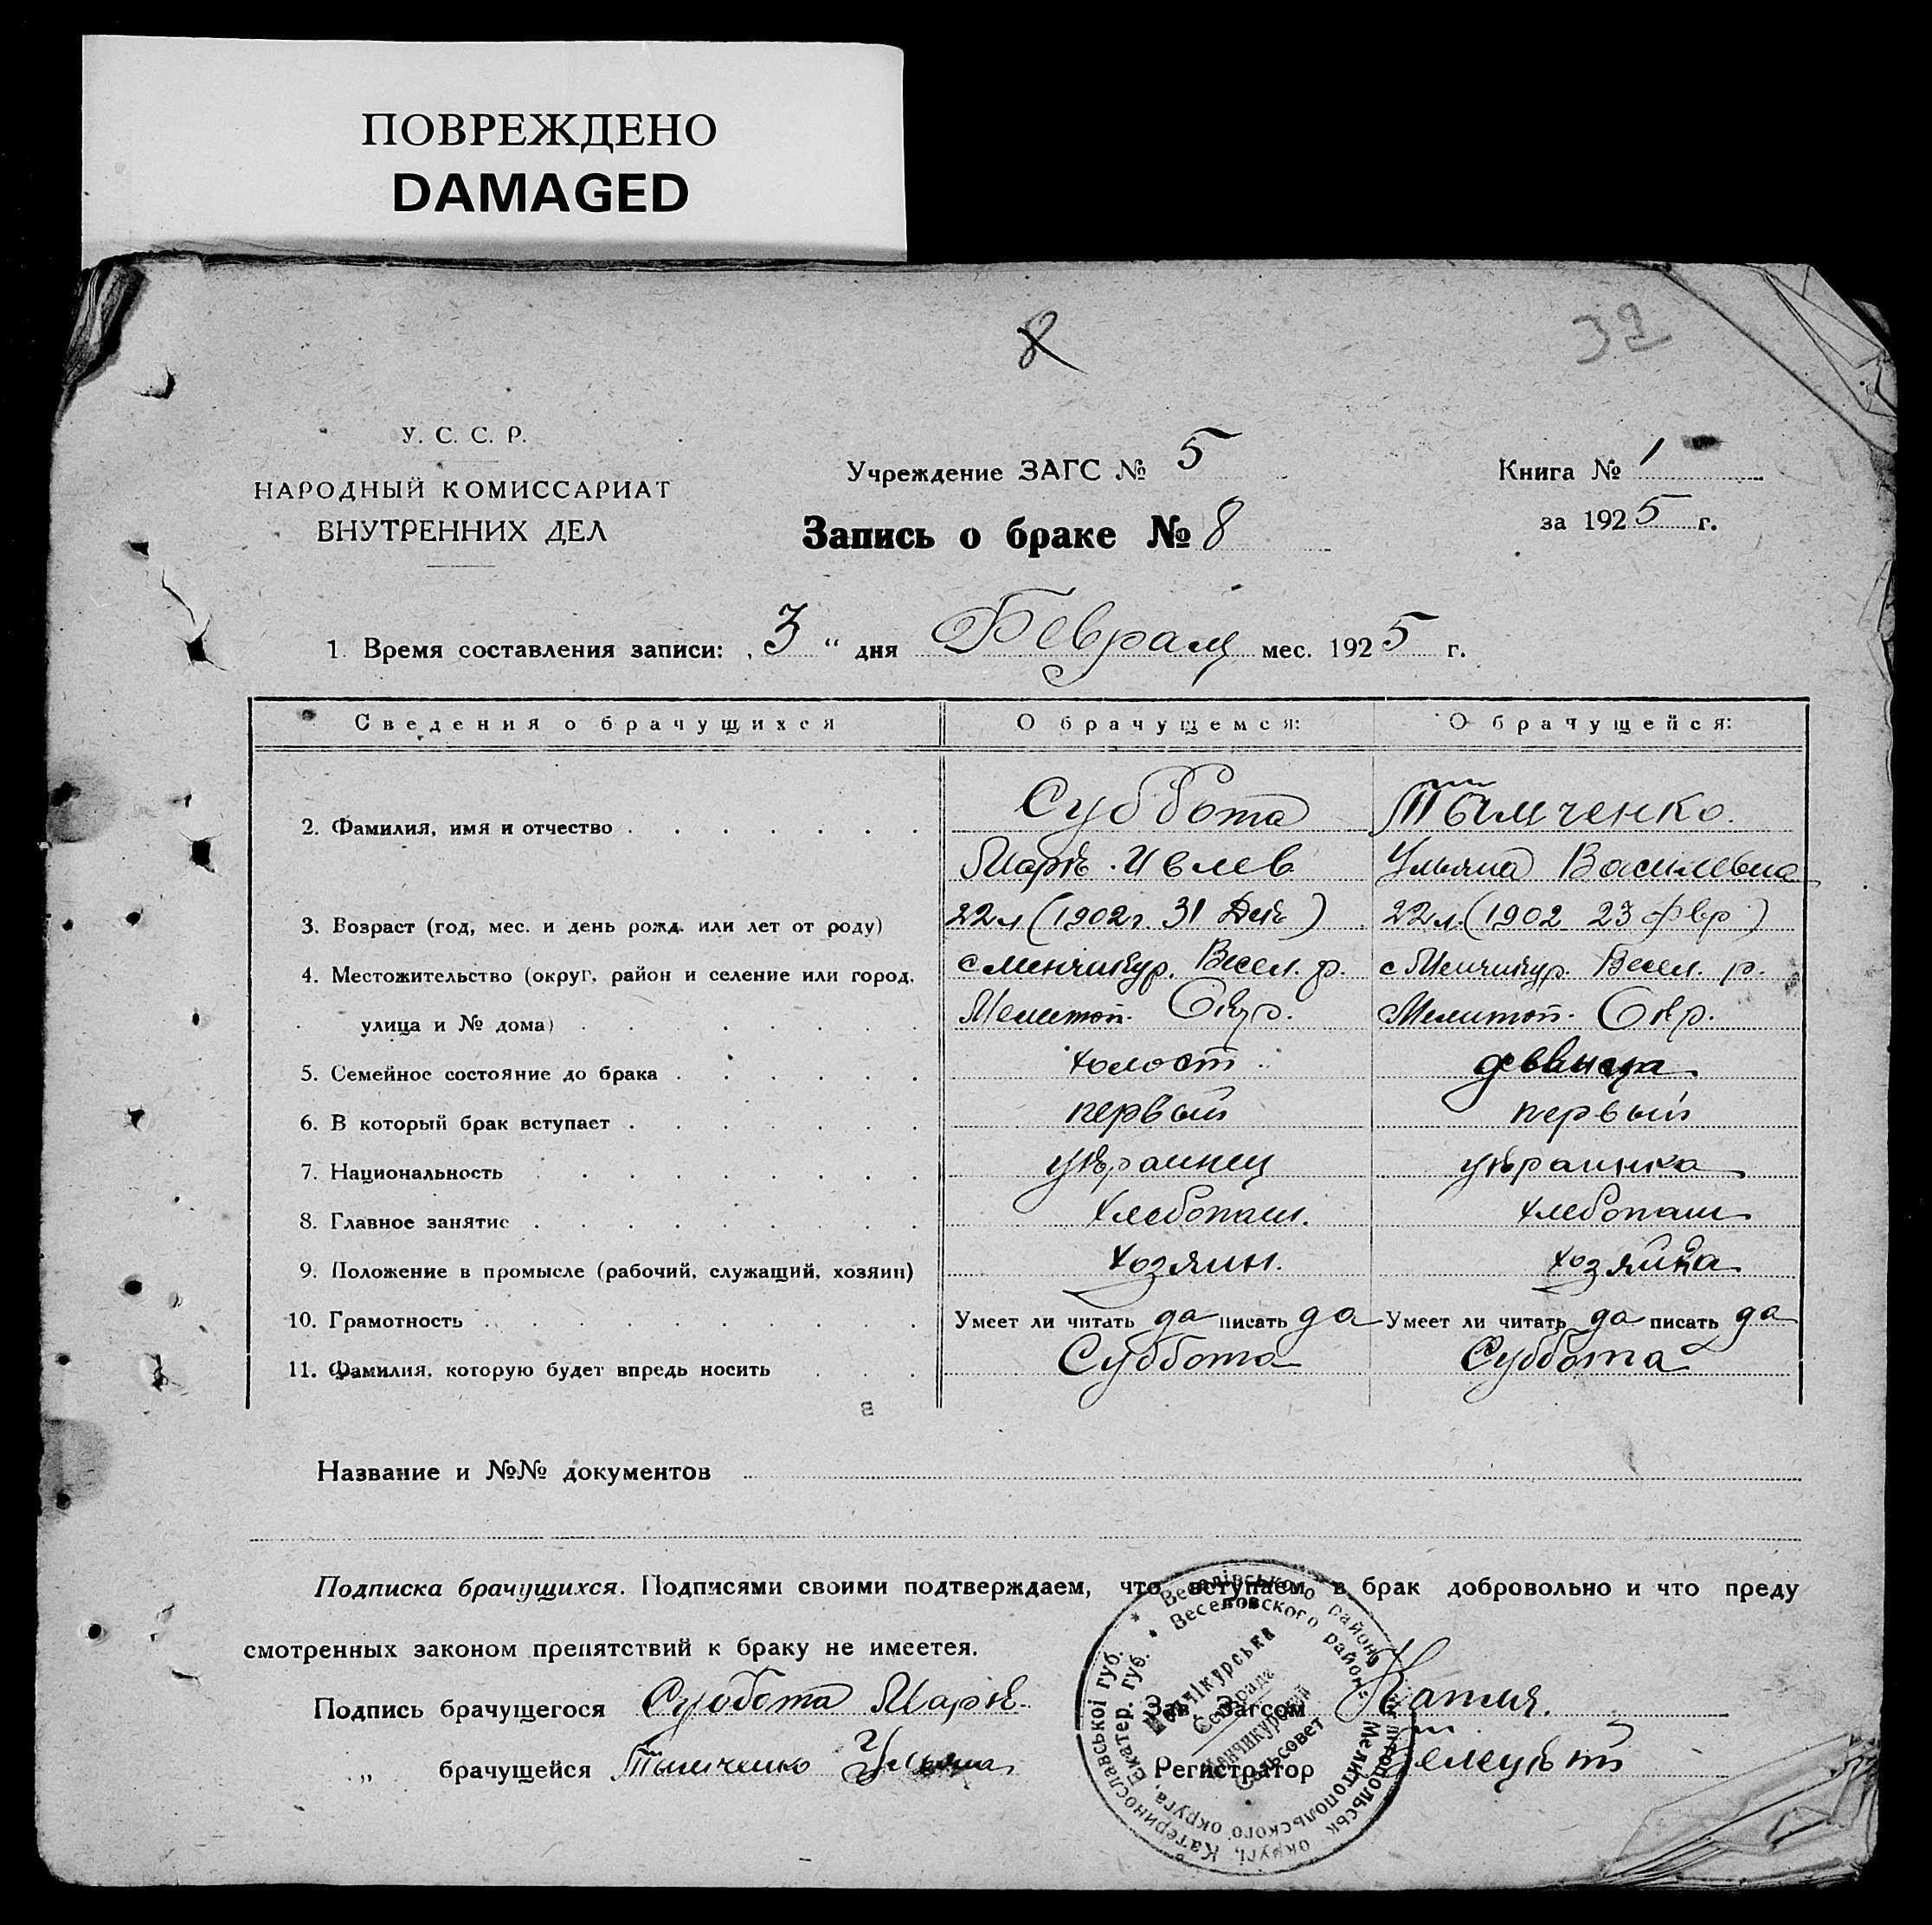 ПОВРЕЖДЕНО
DAMAGED
8
32
У. С. С. Р.
НАРОДНЫЙ КОМИССАРИАТ
ВНУТРЕННИХ ДЕЛ
Учреждение ЗАГС № 5
Запись о браке № 8
Книга № 1
за 1925 г.
1 Время составления записи: „3“ дня Февраля мес. 1925 г.
Сведения о брачущихся О брачущемся: О брачущейся:
Суббота Тымченко.
2. Фамилия, имя и отчество
Марк Ивлев Ульяна Василевна
3. Возраст (год, мес. и день рожд. или лет от роду) 22 л (1902 г. 31 Дек) 22 л. (1902 23 фвр)
4. Местожительство (округ, район и селение или город, с Менчикур. Весел. р. с Менчикур. Весел. р.
улица и № дома) Мелитоп. Окр. Мелитоп. Окр.
5. Семейное состояние до брака холост девица
6. В который брак вступает первый первый
7. Национальность украинец украинка
8. Главное занятие хлебопаш. хлебопаш
9. Положение в промысле (рабочий, служащий, хозяин) хозяин. хозяйка
10. Грамотность Умеет ли читать да писать да Умеет ли читать да писать да
11. Фамилия, которую будет впредь носить Суббота Суббота
Название и №№ документов
Подписка брачущихся. Подписями своими подтверждаем, что вступаем в брак добровольно и что преду
смотренных законом препятствий к браку не имеется.
Подпись брачущегося Суббота Марк Зав. Загсом
„ брачущейся Тымченко Ульяна Регистратор
* Веселівського району Мелітопольськ округі, Катеринославської губ.
* Веселовского район. Мелитопольского округа, Екатер. губ.
Менчікурська
Сельрада
Менчикурский
Сельсовет